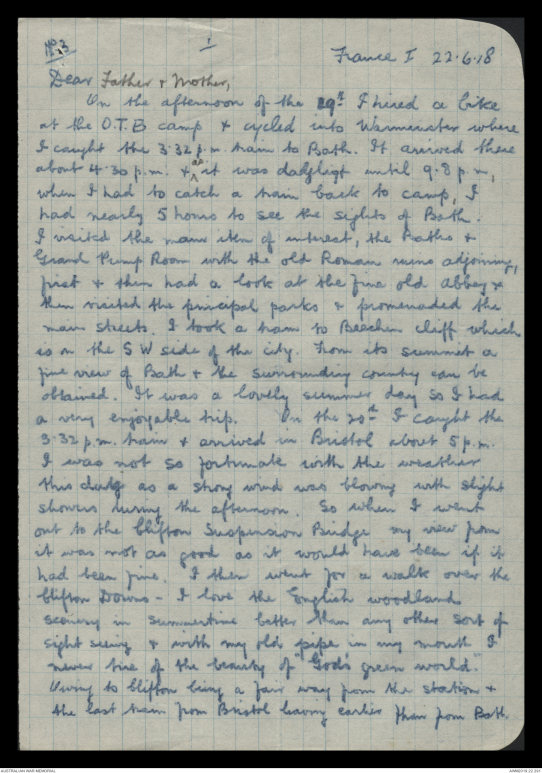 No 3
1
France I 22.6.18
Dear Father & Mother,
On the afternoon of the 19th I hired a bike
at the O.T.B camp & cycled into Warminster where
I caught the 3.32 p.m. train to Bath. It arrived there
about 4.30 p.m. & as it was daylight until 9.8 p.m,
when I had to catch a train back to camp, I
had nearly 5 hours to see the sights of Bath.
I visited the main item of interest, the Baths &
Grand Pump Room with the old Roman ruins adjoining,
first & then had a look at the fine old Abbey &
then visited the principal parks & promenaded the
main streets. I took a tram to Beechen cliff which
is on the S W side of the city. From its summit a
fine view of Bath & the surrounding country can be
obtained. It was a lovely summer day so I had
a very enjoyable trip. On the 20th I caught the
3.32 p.m. train & arrived in Bristol about 5 p.m.
I was not so fortunate with the weather
this day as a strong wind was blowing with slight
showers during the afternoon. So when I went
out to the Clifton Suspension Bridge my view from
it was not as good as it would have been if it
had been fine. I then went for a walk over the
Clifton Downs - I love the English woodland
scenery in summertime better than any other sort of
sight seeing & with my old pipe in my mouth I
never tire of the beauty of "God's green world."
Owing to Clifton being a fair way from the station &
the last train from Bristol leaving earlier than from Bath.
AUSTRALIAN WAR MEMORIAL